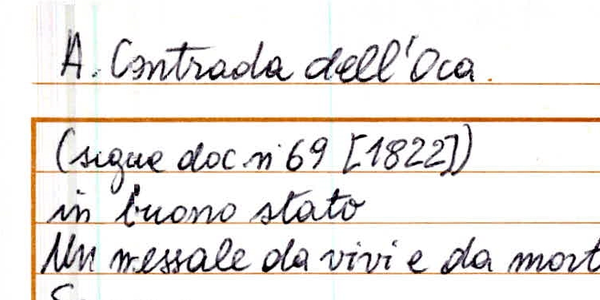 A. Contrada dell'Oca.
(segue doc. n° 69 [1822])
in buono stato
Un messale da vivi e da mort